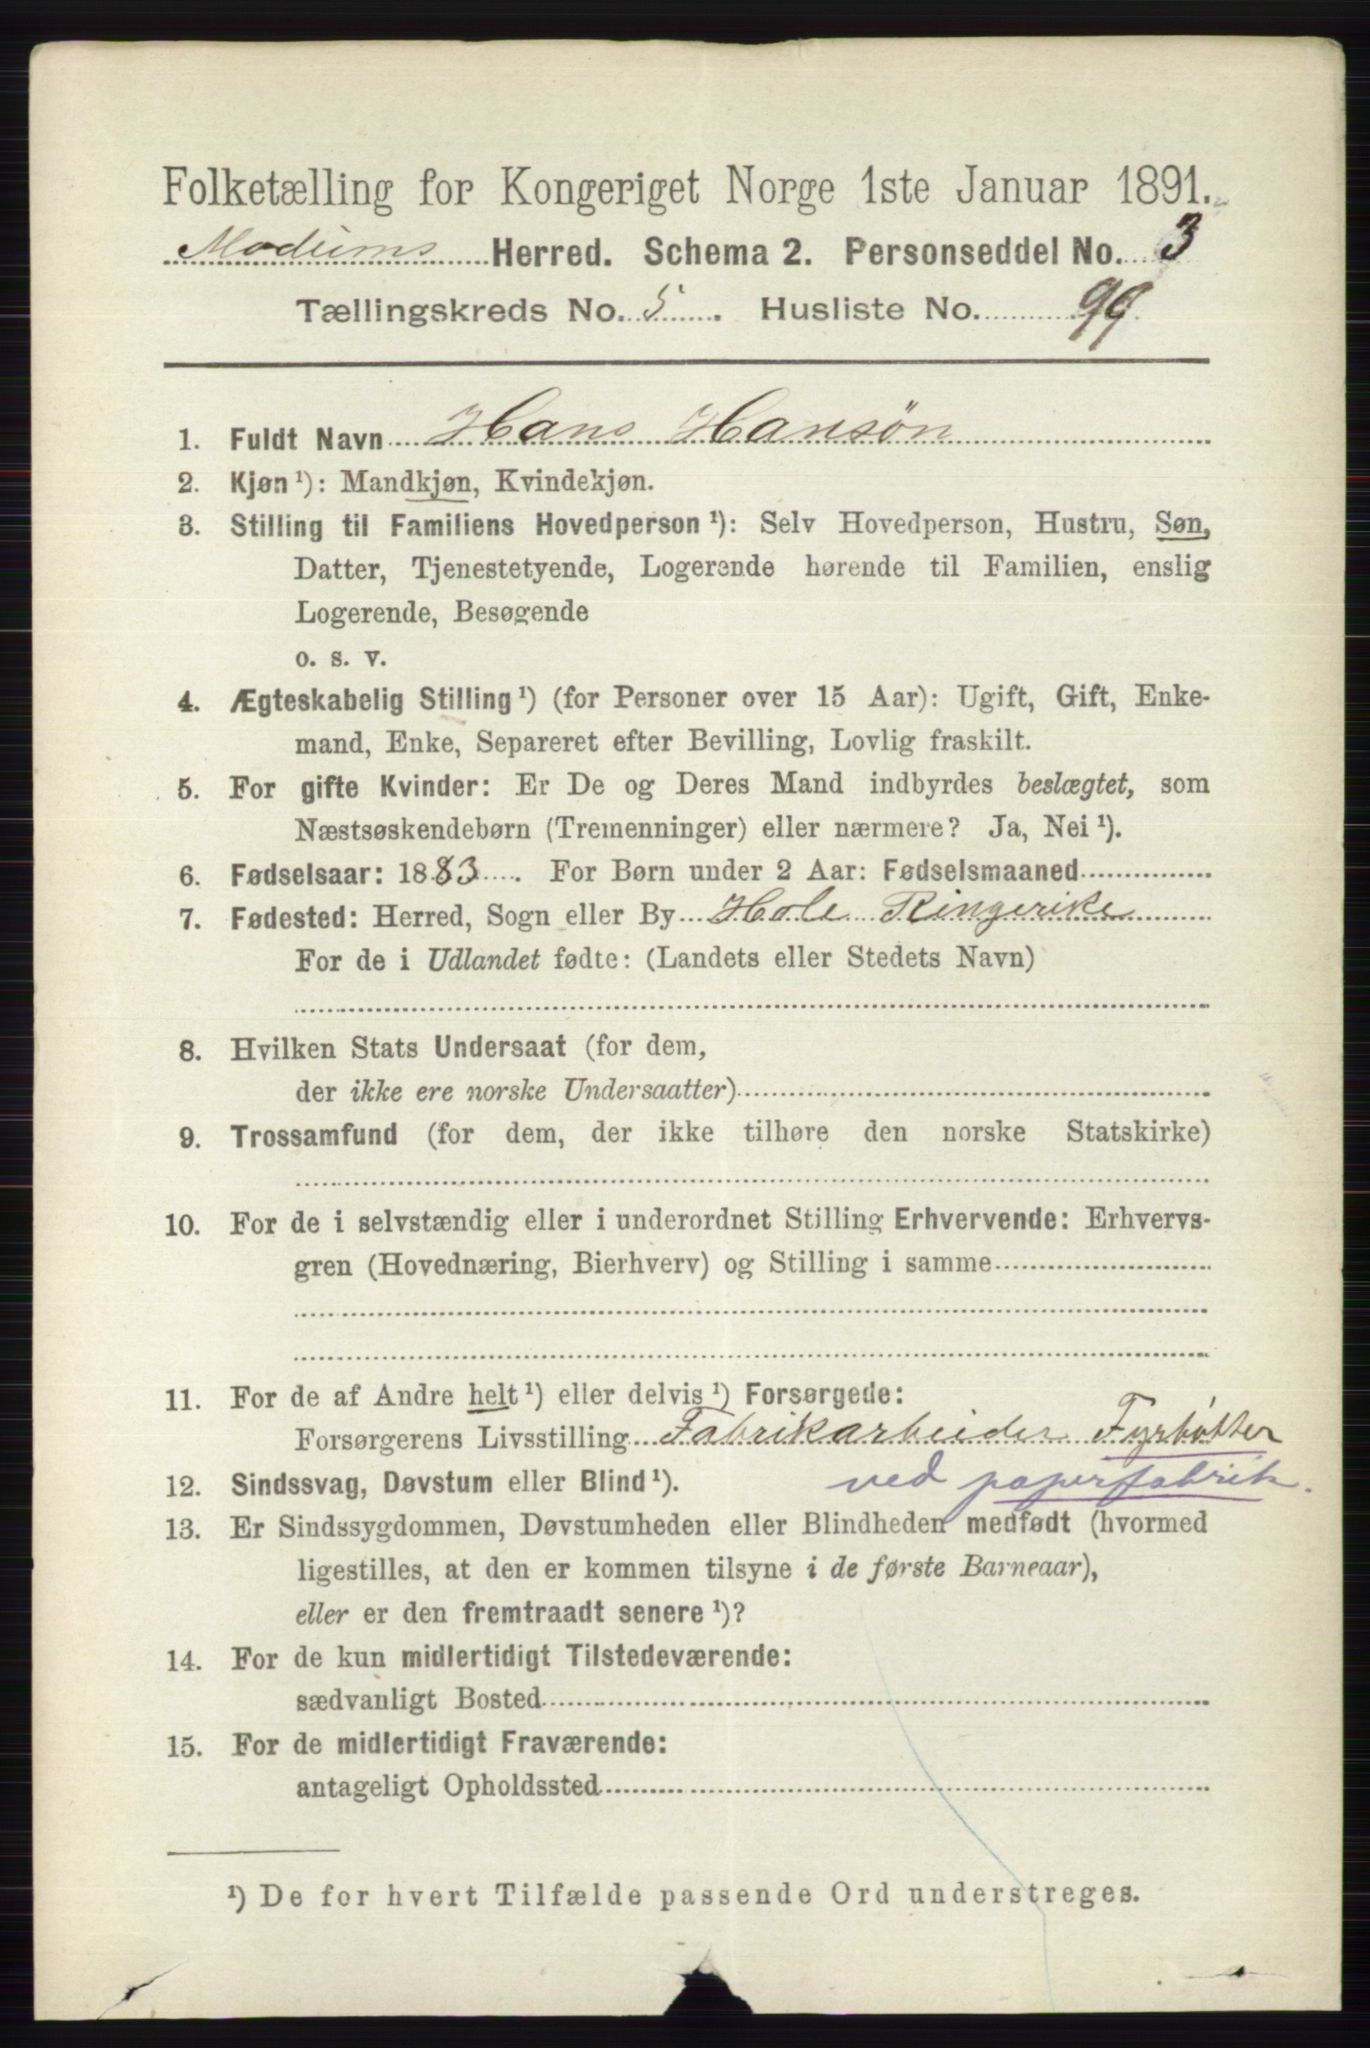 Folketælling for Kongeriget Norge 1ste Januar 1891.
Modums Herred. Schema 2. Personseddel No. 3
Tællingskreds No. 5. Husliste No. 99
1. Fuldt Navn Hans Hansøn
2. Kjøn ¹): Mandkjøn, Kvindekjøn.
3. Stilling til Familiens Hovedperson ¹): Selv Hovedperson, Hustru, Søn,
Datter, Tjenestetyende, Logerende hørende til Familien, enslig
Logerende, Besøgende
o. s. v.
4. Ægteskabelig Stilling ¹) (for Personer over 15 Aar): Ugift, Gift, Enke-
mand, Enke, Separeret efter Bevilling, Lovlig fraskilt.
5. For gifte Kvinder: Er De og Deres Mand indbyrdes beslægtet, som
Næstsøskendebørn (Tremenninger) eller nærmere? Ja, Nei ¹).
6. Fødselsaar: 1883. For Børn under 2 Aar: Fødselsmaaned
7. Fødested: Herred, Sogn eller By Hole Ringerike
For de i Udlandet fødte: (Landets eller Stedets Navn)
8. Hvilken Stats Undersaat (for dem,
der ikke ere norske Undersaatter)
9. Trossamfund (for dem, der ikke tilhøre den norske Statskirke)
10. For de i selvstændig eller i underordnet Stilling Erhvervende: Erhvervs-
gren (Hovednæring, Bierhverv) og Stilling i samme
11. For de af Andre helt ¹) eller delvis ¹) Forsørgede:
Forsørgerens Livsstilling Fabrikarbeider Fyrbøtter
ved paperfabrik.
12. Sindssvag, Døvstum eller Blind ¹).
13. Er Sindssygdommen, Døvstumheden eller Blindheden medfødt (hvormed
ligestilles, at den er kommen tilsyne i de første Barneaar),
eller er den fremtraadt senere ¹)?
14. For de kun midlertidigt Tilstedeværende:
sædvanligt Bosted
15. For de midlertidigt Fraværende:
antageligt Opholdssted
¹) De for hvert Tilfælde passende Ord understreges.